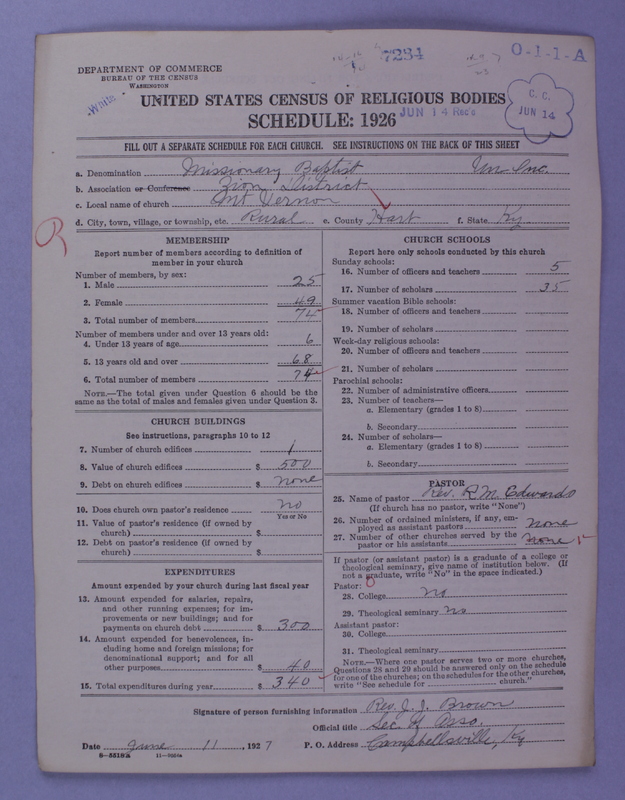 7234
O-1-1-A
DEPARTMENT OF COMMERCE
BUREAU OF THE CENSUS
WASHINGTON
White
UNITED STATES CENSUS OF RELIGIOUS BODIES
JUN 14 Rec'd
C. C.
JUN 14
SCHEDULE: 1926
FILL OUT A SEPARATE SCHEDULE FOR EACH CHURCH. SEE INSTRUCTIONS ON THE BACK OF THIS SHEET
a. Denomination Missionary Baptist Un Inc.
b. Association or Conference Zion District
c. Local name of church Mt Vernon
d. City, town, village, or township, etc. Rural e. County Hart f. State Ky
R
MEMBERSHIP
Report number of members according to definition of
member in your church
Number of members, by sex:
1. Male 25
2. Female 49
3. Total number of members 74
Number of members under and over 13 years old:
4. Under 13 years of age 6
5. 13 years old and over 68
6. Total number of members 74
NOTE.—The total given under Question 6 should be the
same as the total of males and females given under Question 3.
CHURCH BUILDINGS
See instructions, paragraphs 10 to 12
7. Number of church edifices 1
8. Value of church edifices $ 500
9. Debt on church edifices $ none
10. Does church own pastor's residence? no
Yes or No
11. Value of pastor's residence (if owned by
church) $
12. Debt on pastor's residence (if owned by
church) $
EXPENDITURES
Amount expended by your church during last fiscal year
13. Amount expended for salaries, repairs,
and other running expenses; for im-
provements or new buildings; and for
payments on church debt $ 300
14. Amount expended for benevolences, in-
cluding home and foreign missions; for
denominational support; and for all
other purposes $ 40
15. Total expenditures during year $ 340
CHURCH SCHOOLS
Report here only schools conducted by this church
Sunday schools:
16. Number of officers and teachers 5
17. Number of scholars 35
Summer vacation Bible schools:
18. Number of officers and teachers
19. Number of scholars
Week-day religious schools:
20. Number of officers and teachers
21. Number of scholars
Parochial schools:
22. Number of administrative officers
23. Number of teachers—
a. Elementary (grades 1 to 8)
b. Secondary
24. Number of scholars—
a. Elementary (grades 1 to 8)
b. Secondary
PASTOR
25. Name of pastor Rev. R. M. Edwards
(If church has no pastor, write "None")
26. Number of ordained ministers, if any, em-
ployed as assistant pastors none
27. Number of other churches served by the
pastor or his assistants none
If pastor (or assistant pastor) is a graduate of a college or
theological seminary, give name of institution below. (If
not a graduate, write "No" in the space indicated.)
Pastor: 0
28. College no
29. Theological seminary no
Assistant pastor:
30. College
31. Theological seminary
NOTE.—Where one pastor serves two or more churches,
Questions 28 and 29 should be answered only on the schedule
for one of the churches; on the schedules for the other churches,
write "See schedule for church."
Signature of person furnishing information Rev. J. J. Brown
Official title Sec. of Asso.
Date June 11, 1927 P. O. Address Campbellsville, Ky
8-5518A 11-9204a